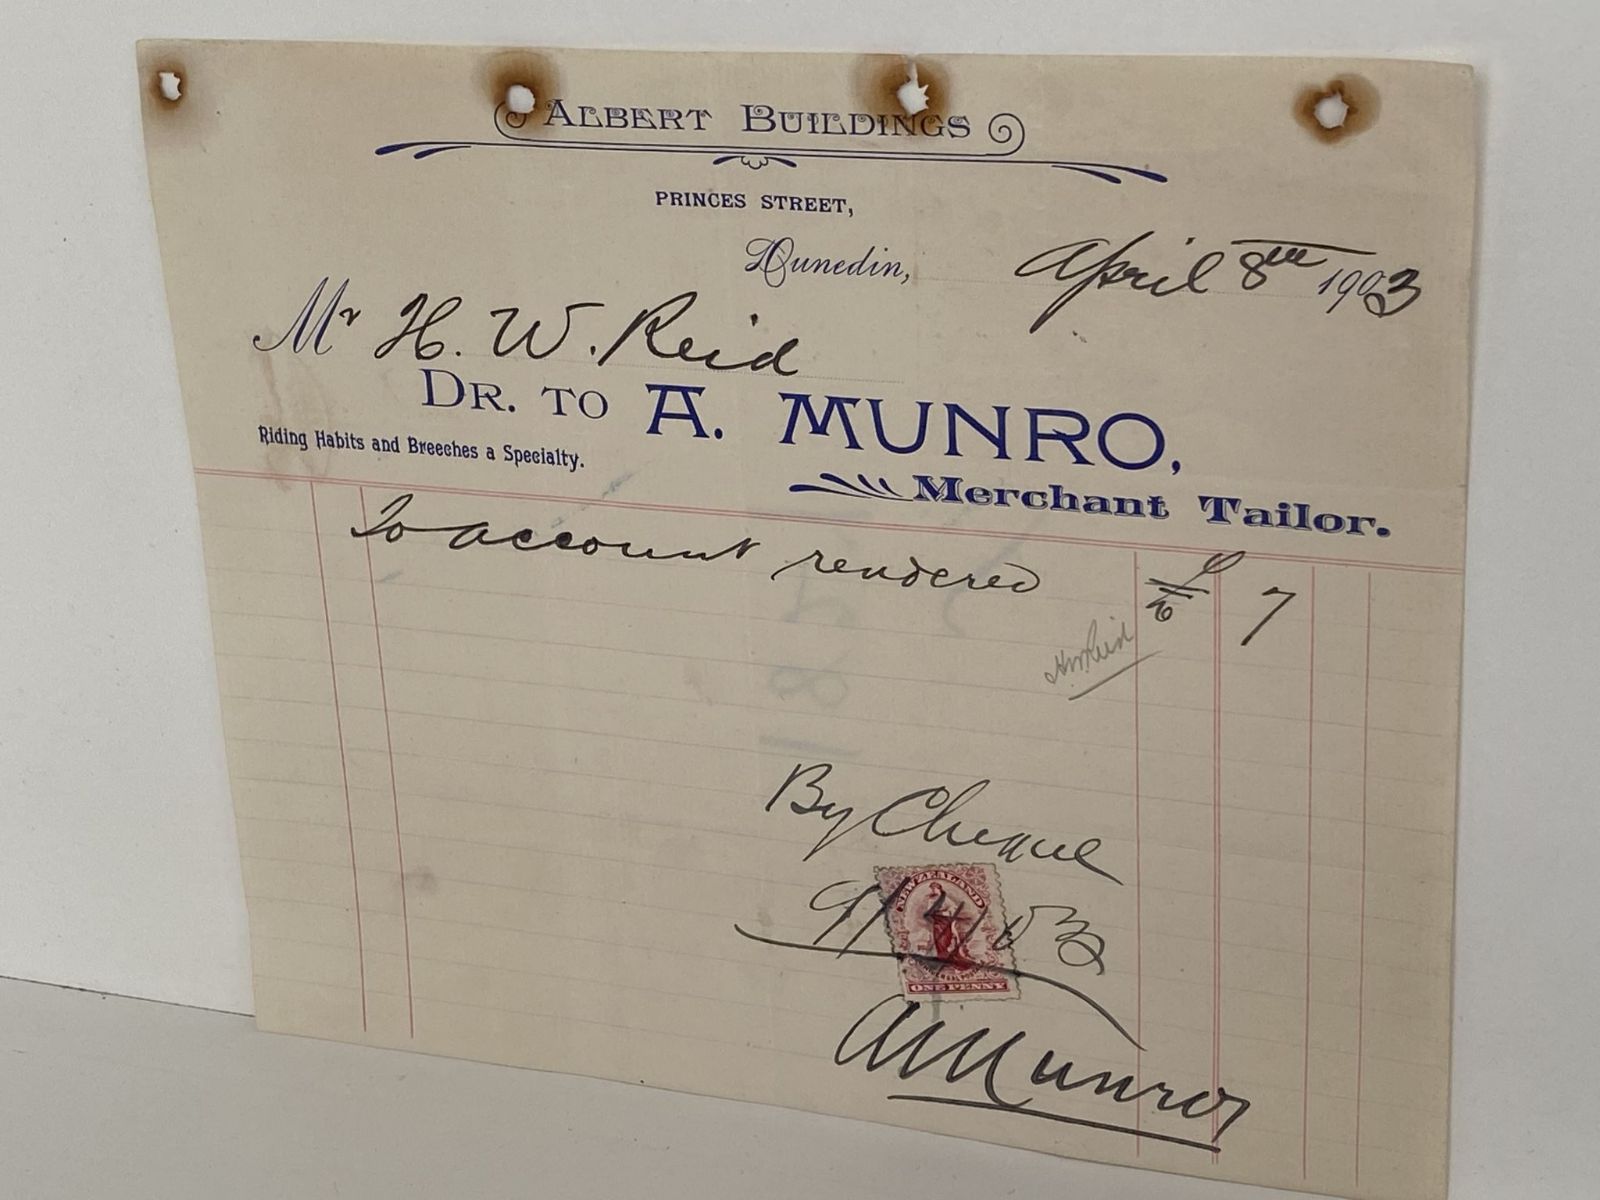 ALBERT BUILDINGS
PRINCES STREET,
Dunedin, April 8th 1903
Mr H. W. Reid
DR. TO A. MUNRO,
Riding Habits and Breeches a Specialty.
Merchant Tailor.
To account rendered £ 7
HWReid
By Cheque
9/4/03
NEW ZEALAND
ONE PENNY
A Munro